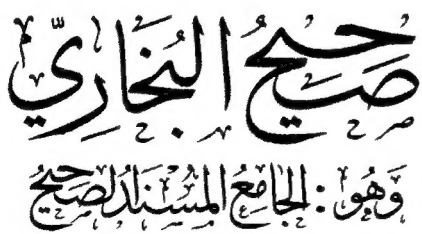 صَحِيحُ البُخَارِيِّ
وَهُوَ: الجَامِعُ المُسْنَدُ الصَّحِيحُ